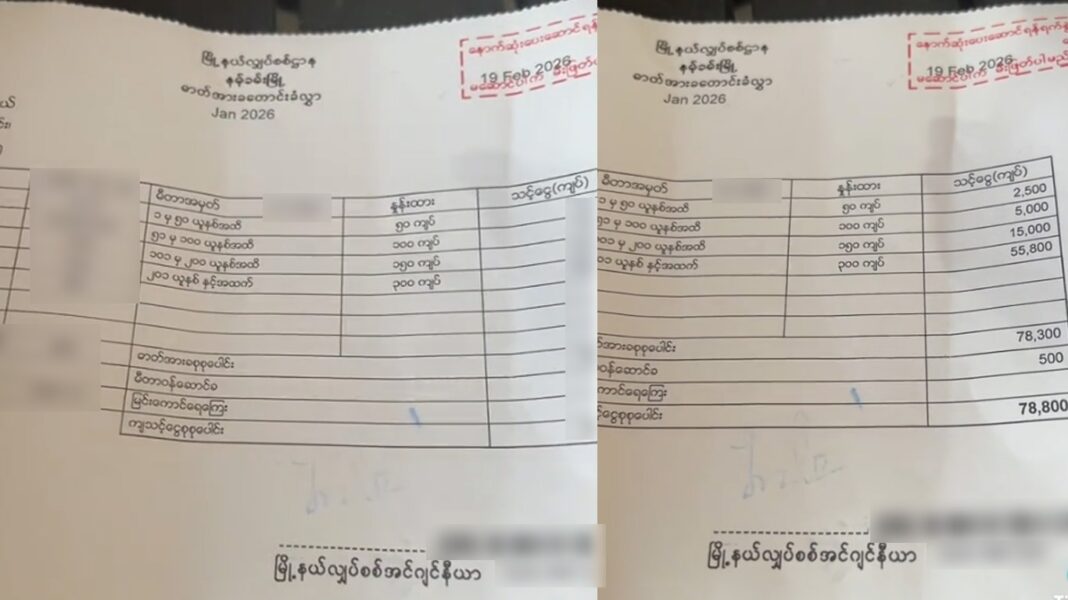 မြို့နယ်လျှပ်စစ်ဌာန
နမ့်ခမ်းမြို့
ဓာတ်အားခတောင်းခံလွှာ
Jan 2026
နောက်ဆုံးပေးဆောင်ရန်ရက်
19 Feb 2026
မီတာအမှတ် နှုန်းထား သင့်ငွေ(ကျပ်)
၁ မှ ၅၀ ယူနစ်အထိ ၅၀ ကျပ်
၅၁ မှ ၁၀၀ ယူနစ်အထိ ၁၀၀ ကျပ်
၁၀၁ မှ ၂၀၀ ယူနစ်အထိ ၁၅၀ ကျပ်
၂၀၁ ယူနစ် နှင့်အထက် ၃၀၀ ကျပ်
ဓာတ်အားခစုစုပေါင်း
မီတာဝန်ဆောင်ခ
မြင်းကောင်ရေကြေး
ကျသင့်ငွေစုစုပေါင်း
မြို့နယ်လျှပ်စစ်အင်ဂျင်နီယာ
မြို့နယ်လျှပ်စစ်ဌာန
နမ့်ခမ်းမြို့
ဓာတ်အားခတောင်းခံလွှာ
Jan 2026
နောက်ဆုံးပေးဆောင်ရန်ရက်
19 Feb 2026
မဆောင်ပါက မီးဖြတ်ပါမည်
မီတာအမှတ် နှုန်းထား သင့်ငွေ(ကျပ်)
၁ မှ ၅၀ ယူနစ်အထိ ၅၀ ကျပ် 2,500
၅၁ မှ ၁၀၀ ယူနစ်အထိ ၁၀၀ ကျပ် 5,000
၁၀၁ မှ ၂၀၀ ယူနစ်အထိ ၁၅၀ ကျပ် 15,000
၀၁ ယူနစ် နှင့်အထက် ၃၀၀ ကျပ် 55,800
တ်အားခစုစုပေါင်း 78,300
ဝန်ဆောင်ခ 500
ကောင်ရေကြေး
င့်ငွေစုစုပေါင်း 78,800
မြို့နယ်လျှပ်စစ်အင်ဂျင်နီယာ